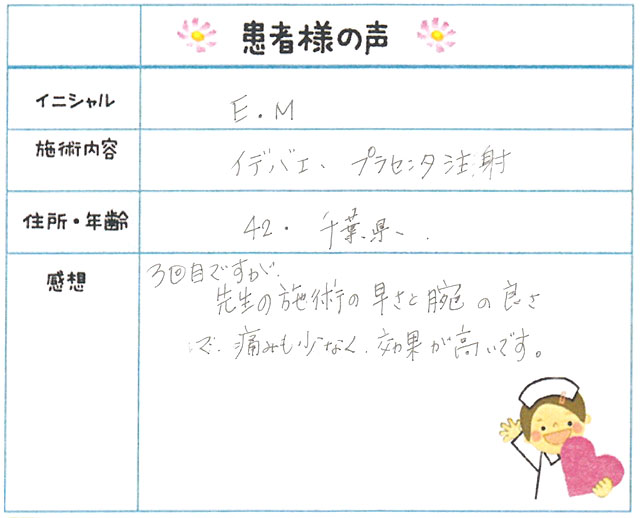 患者様の声
イニシャル
E.M
施術内容
イデバエ、プラセンタ注射
住所・年齢
42・千葉県、
感想
3回目ですが、
先生の施術の早さと腕の良さ
で、痛みも少なく、効果が高いです。